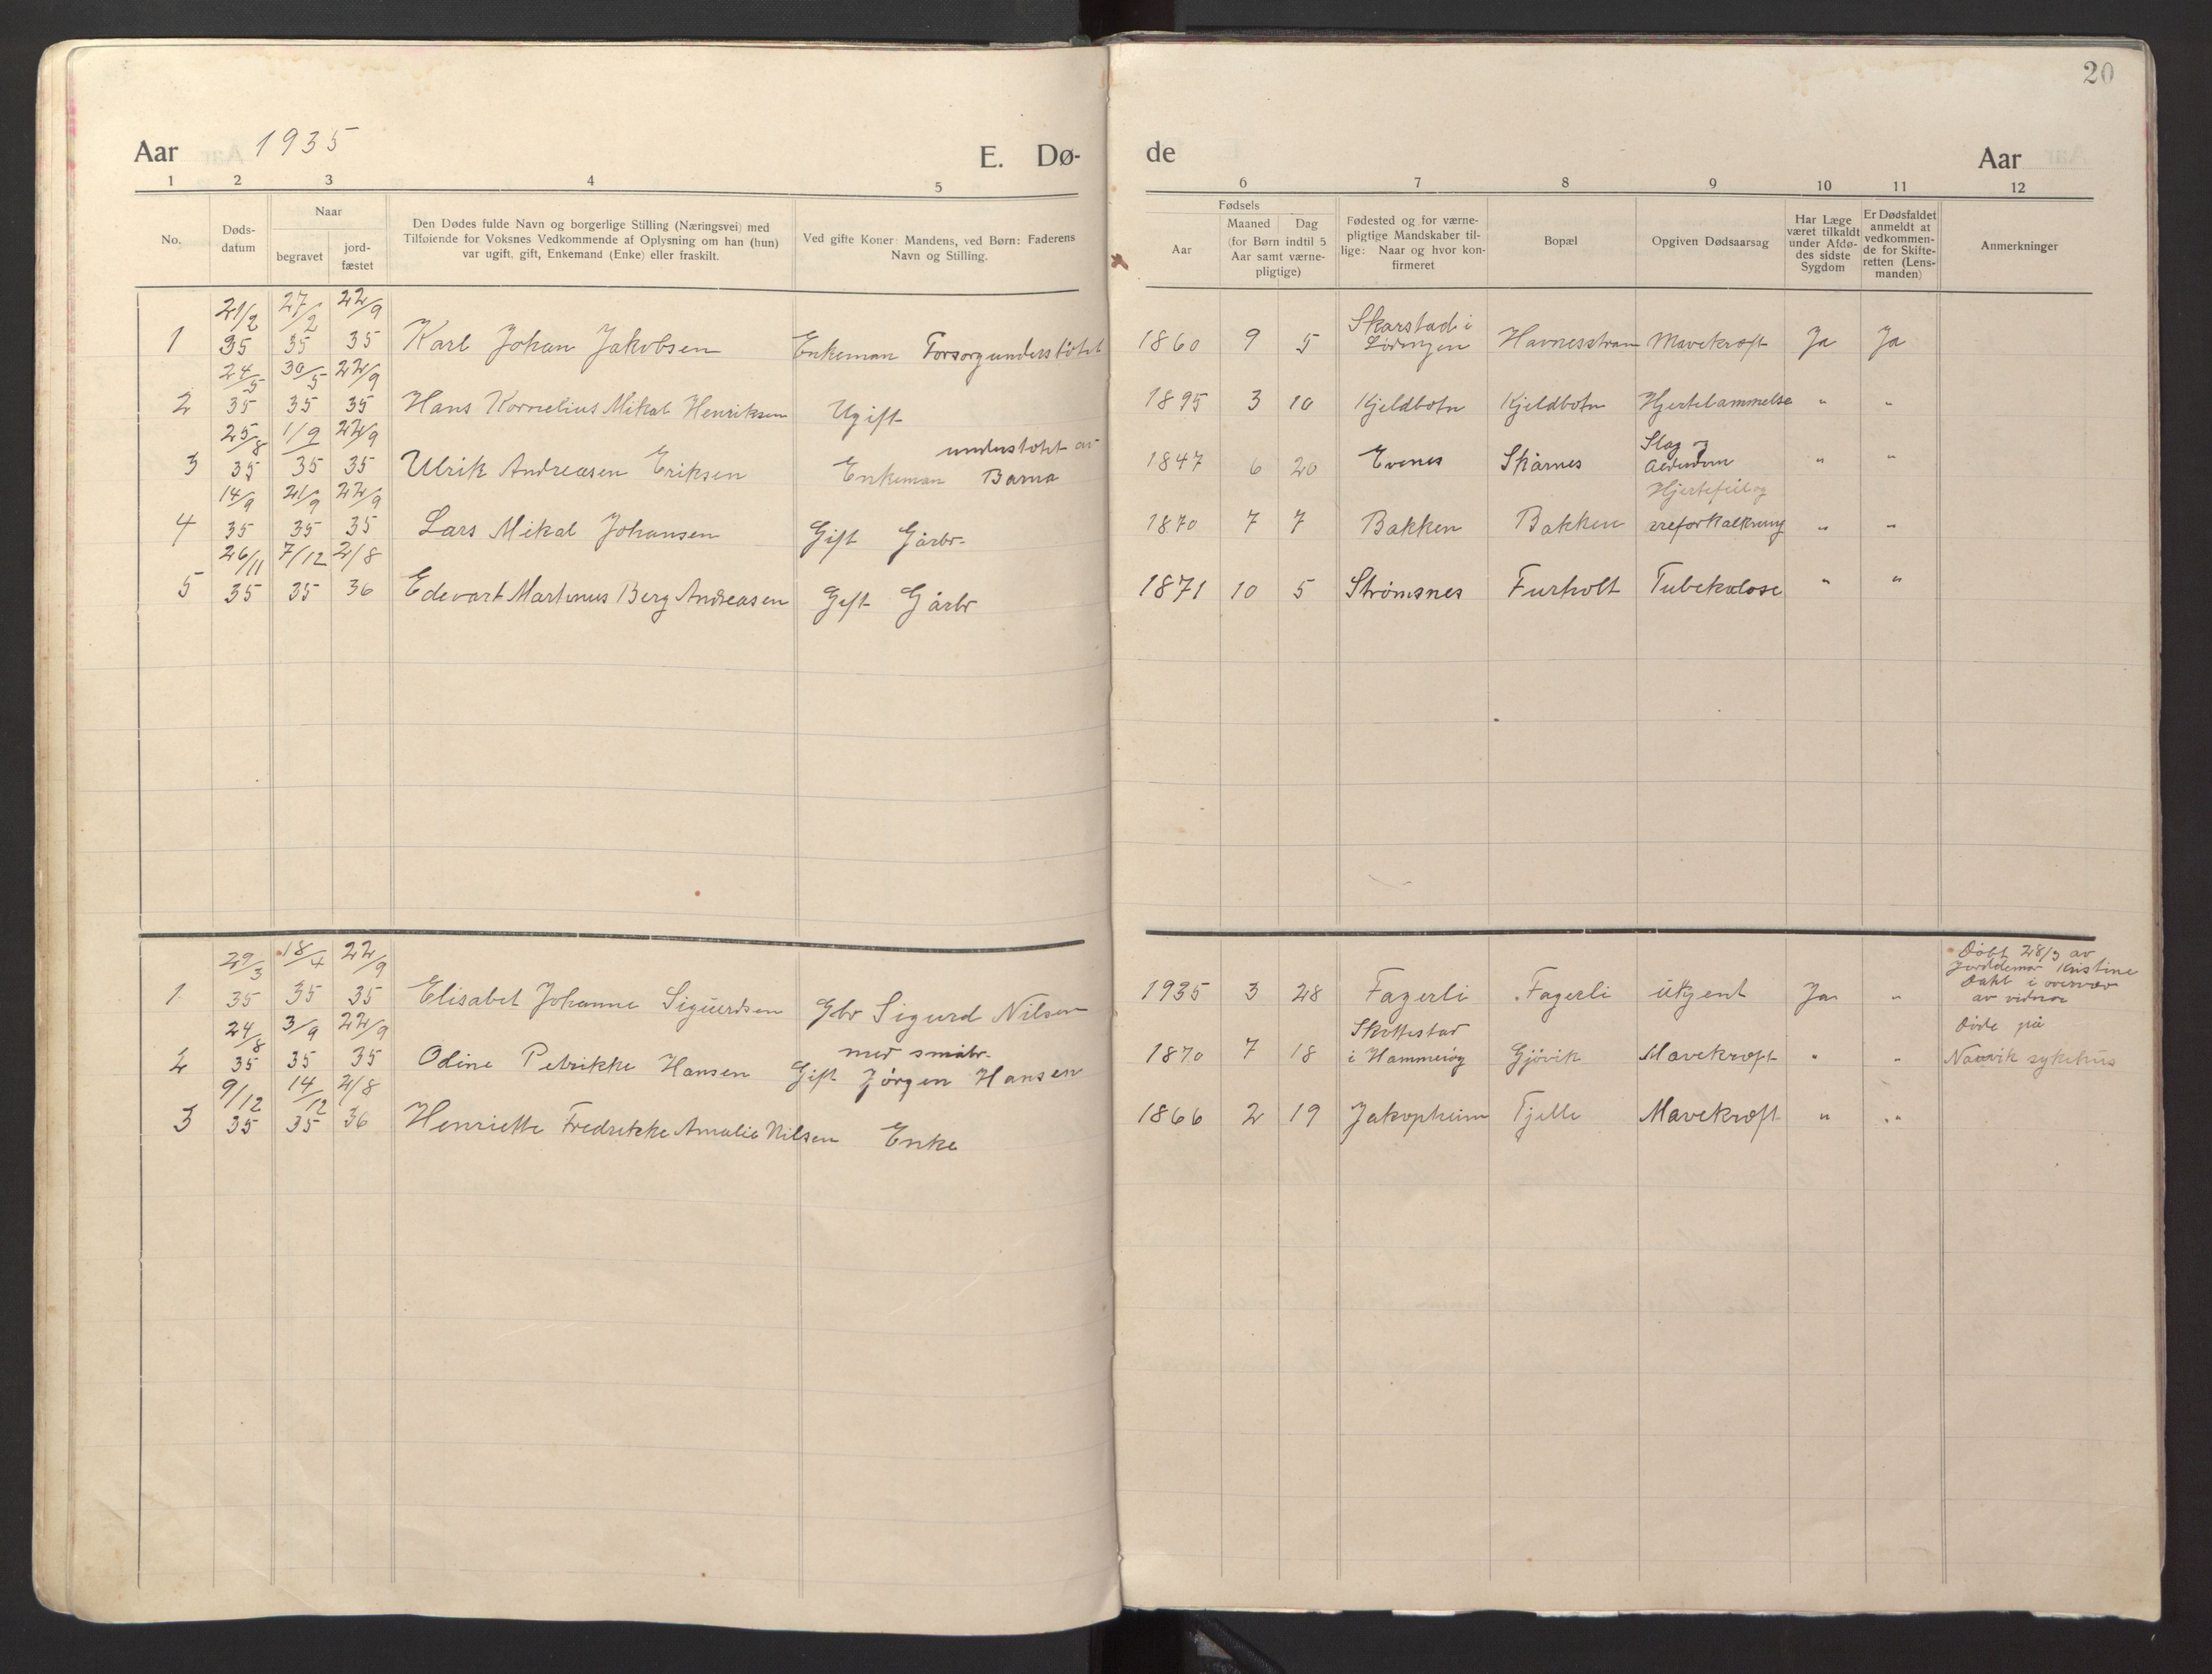 20
Aar 1935 E. Dø- de Aar
1 2 3 4 5 6 7 8 9 10 11 12
No.
Døds-
datum
Naar
begravet
jord-
fæstet
Den Dødes fulde Navn og borgerlige Stilling (Næringsvei) med
Tilføiende for Voksnes Vedkommende af Oplysning om han (hun)
var ugift, gift, Enkemand (Enke) eller fraskilt.
Ved gifte Koner: Mandens, ved Børn: Faderens
Navn og Stilling.
Fødsels
Aar
Maaned Dag
(for Børn indtil 5
Aar samt værne-
pligtige)
Fødested og for værne-
pligtige Mandskaber til-
lige: Naar og hvor kon-
firmeret
Bopæl
Opgiven Dødsaarsag
Har Læge
været tilkaldt
under Afdø-
des sidste
Sygdom
Er Dødsfaldet
anmeldt at
vedkommen-
de for Skifte-
retten (Lens-
manden)
Anmerkninger
21/2 27/2 22/9 Skarstad i
1 35 35 35 Karl Johan Jakobsen Enkeman Forsorgunderstøtet 1860 9 5 Lødingen Havnesstran Mavekræft Ja Ja
24/5 30/5 22/9
2 35 35 35 Hans Kornelius Mikal Henriksen Ugift 1895 3 10 Kjeldbotn Kjeldbotn Hjertelammelse " "
25/8 1/9 22/9 understøtet av Slag og
3 35 35 35 Ulrik Andreasen Eriksen Enkeman Barna 1847 6 20 Evenes Skårnes Alderdom " "
14/9 21/9 22/9 Hjertefeil og
4 35 35 35 Lars Mikal Johansen Gift Gårbr. 1870 7 7 Bakken Bakken åreforkalkning " "
26/11 7/12 2/8
5 35 35 36 Edevart Martinus Berg Andreasen Gift Gårbr 1871 10 5 Strømsnes Furholt Tubekulose " "
29/3 18/4 22/9 Døbt 28/3 av
Jorddemor Kristine
1 35 35 35 Elisabet Johanne Sigurdsen Gbr Sigurd Nilsen 1935 3 28 Fagerli Fagerli ukjent Ja " i overvær
av vidner
24/8 3/9 22/9 med småbr. Skottestad Døde på
2 35 35 35 Odine Petrikke Hansen Gift Jørgen Hansen 1870 7 18 i Hammerøy Gjøvik Mavekræft " " Narvik sykehus
9/12 14/12 2/8
3 35 35 36 Henriette Fredrikke Amalie Nilsen Enke 1866 2 19 Jakopheim Tjelle Mavekræft " "